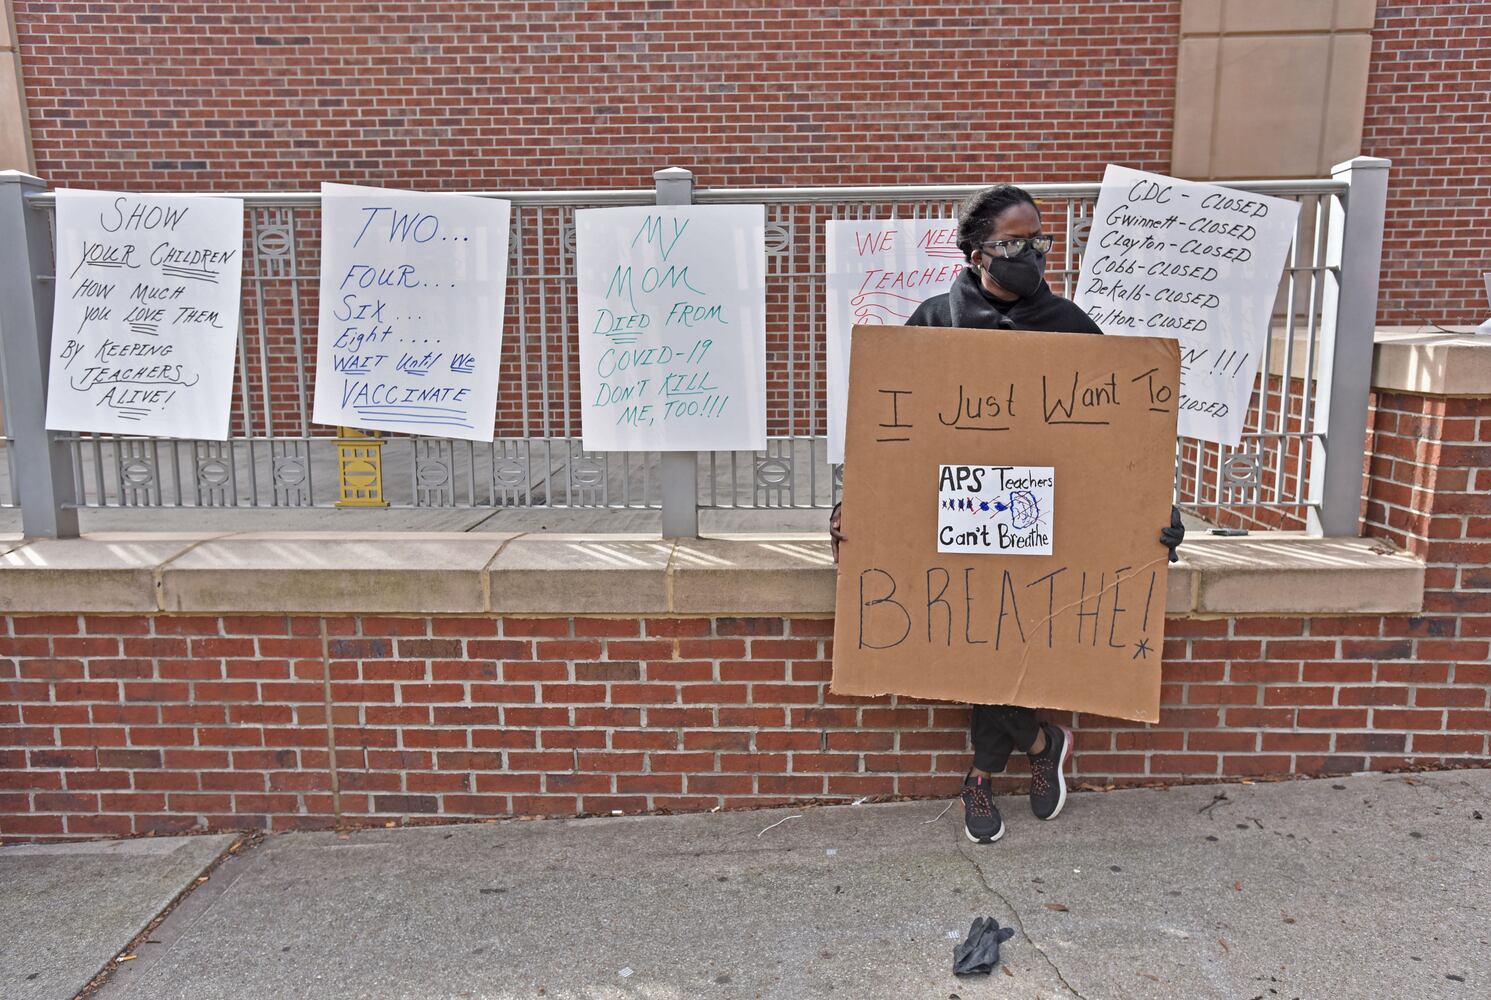 SHOW
YOUR CHILDREN
HOW MUCH
YOU LOVE THEM
BY KEEPING
TEACHERS
ALIVE!
TWO...
FOUR...
SIX...
Eight....
WAIT Until We
VACCINATE
MY
MOM
DIED FROM
COVID-19
DON'T KILL
ME, TOO!!!
WE
TEACHER
I Just Want To
APS Teachers
Can't Breathe
BREATHE!
*
CDC - CLOSED
Gwinnett - CLOSED
Clayton - CLOSED
Cobb - CLOSED
DeKalb - CLOSED
Fulton - CLOSED
N!!!
CLOSED